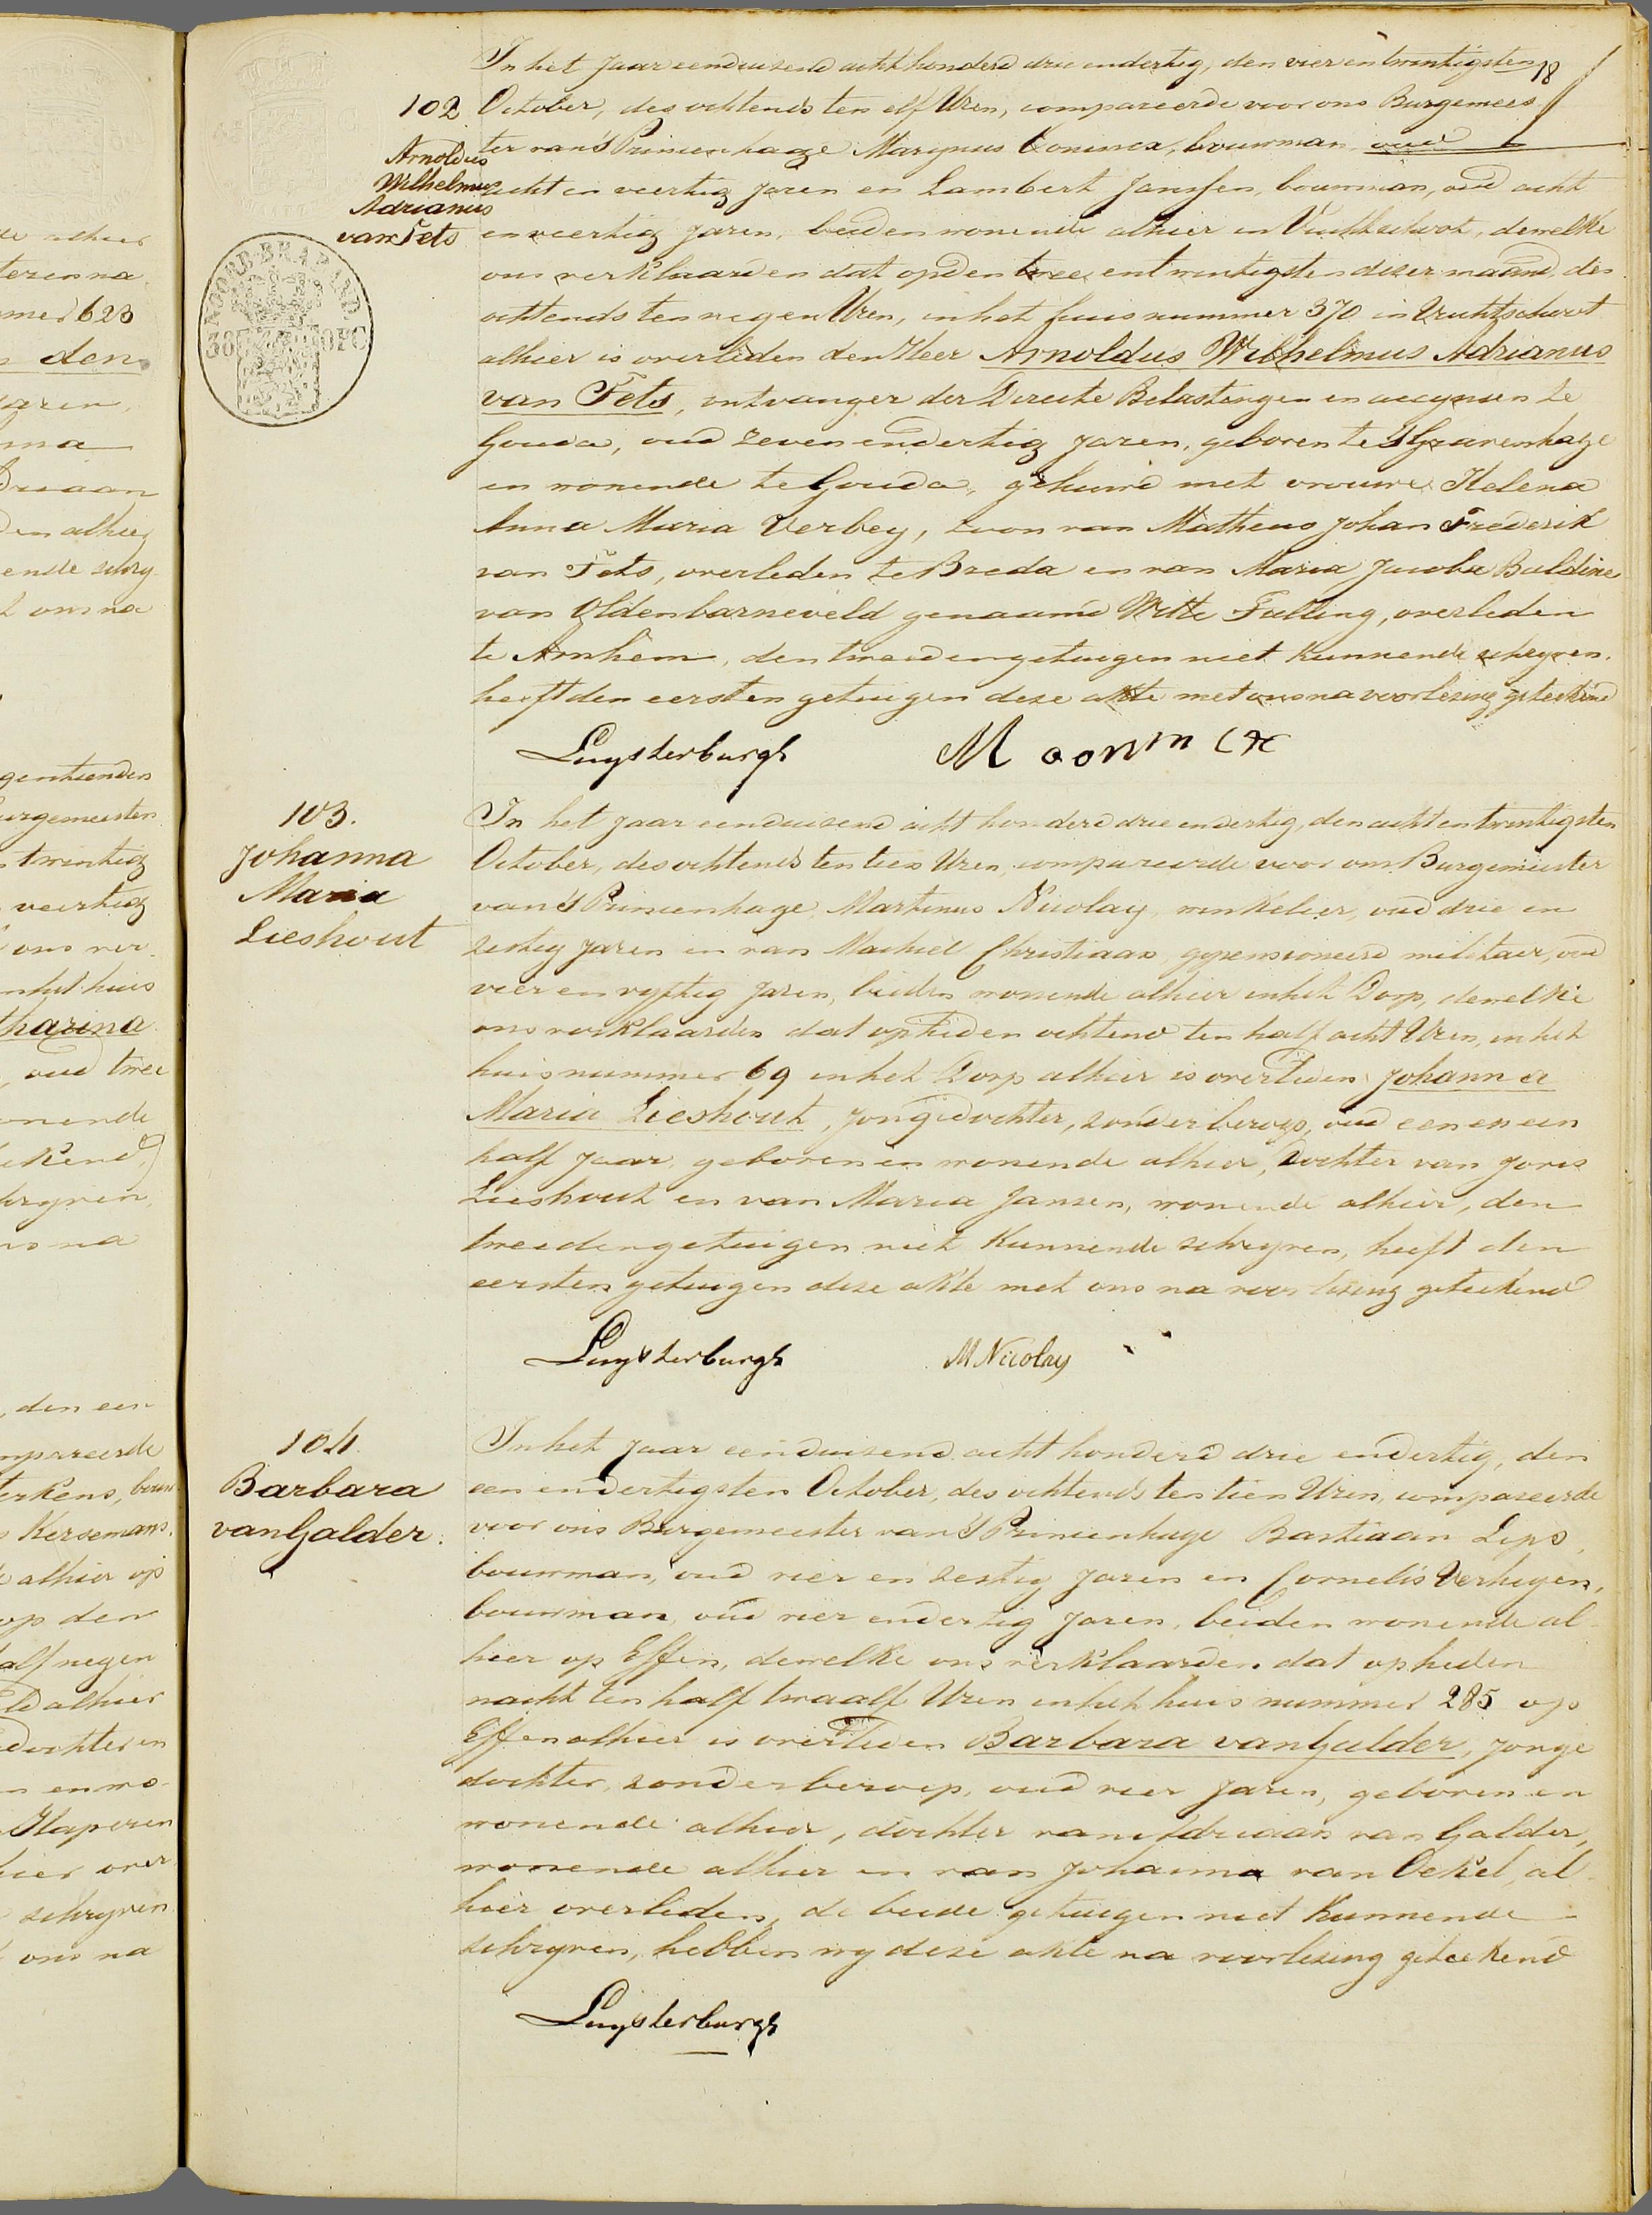 18
In het Jaar eenduizend acht honderd drie endertig, den vier en twintigsten
102 October, des ochtends ten elf Uren, compareerde voor ons Burgemees
Arnoldus
Wilhelmus
Adrianus
van Fets
ter van 'sPrincenhage Marynus Coninex, bouwman, oud
acht en veertig Jaren en Lambert Janssen, bouwman, oud acht
en veertig Jaren, beiden wonende alhier in Vuchtschoot, dewelke
ons verklaarden dat op den twee en twintigsten dezer maand, des
ochtends ten negen Uren, in het huis nummer 370 in Vuchtschoot
alhier is overleden den Heer Arnoldus Wilhelmus Adrianus
van Fets, ontvanger der Directe Belastingen en accynsen te
Gouda, oud zeven endertig Jaren, geboren te 'sGravenhage
en wonende te Gouda, gehuwd met vrouwe Helena
Anna Maria Verbey, zoon van Matheus Johan Frederik
van Fets, overleden te Breda en van Maria Jacoba Baldine
van Oldenbarneveld genaamd Witte Tulling, overleden
te Arnhem, den tweeden getuigen niet kunnende schryven,
heeft den eersten getuigen deze akte met ons na voorlezing geteekend
Luysterburgh M conincx
NOORD-BRABAND
103.
Johanna
Maria
Lieshout
In het Jaar eenduizend acht honderd drie endertig, den acht en twintigsten
October, des ochtends ten tien Uren, compareerde voor ons Burgemeester
van 'sPrincenhage, Martinus Nicolay, winkelier, oud drie en
zestig Jaren en van Machiel Christiaan, gepensioneerd militair, oud
vier en vyftig Jaren, beiden wonende alhier in het Dorp, dewelke
ons verklaarden dat op heden ochtend ten half acht Uren, in het
huis nummer 69 in het Dorp alhier is overleden Johanna
Maria Lieshout, Jongedochter, zonder beroep, oud een en een
half Jaar, geboren en wonende alhier, Dochter van Joris
Lieshout en van Maria Jansen, wonende alhier, den
tweeden getuigen niet kunnende schryven, heeft den
eersten getuigen deze akte met ons na voorlezing geteekend
Luysterburgh M Nicolay
104.
Barbara
van Galder.
In het Jaar eenduizend acht honderd drie endertig, den
een endertigsten October, des ochtends ten tien Uren, compareerde
voor ons Burgemeester van 'sPrincenhage Bastiaan Lips,
bouwman, oud vier en zestig Jaren en Cornelis Verhegen,
bouwman, oud vier endertig Jaren, beiden wonende al
hier op Effen, dewelke ons verklaarden dat op heden
nacht ten half twaalf Uren in het huis nummer 285 op
Effen alhier is overleden Barbara van Galder, Jonge
dochter, zonder beroep, oud vier Jaren, geboren en
wonende alhier, dochter van Adriaan van Galder,
wonende alhier en van Johanna van Oekel, al
hier overleden, de beide getuigen niet kunnende
schryven, hebben wy deze akte na voorlezing geteekend
Luysterburgh